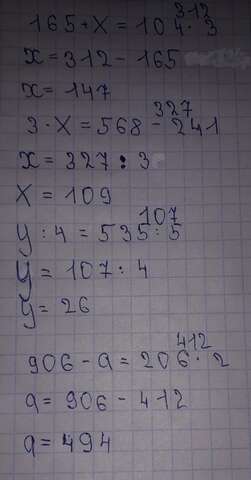 312
165 + x = 104 · 3
x = 312 - 165
x = 147
327
3 · x = 568 - 241
x = 327 : 3
x = 109
107
y : 4 = 535 : 5
y = 107 : 4
y = 26
412
906 - a = 206 · 2
a = 906 - 412
a = 494